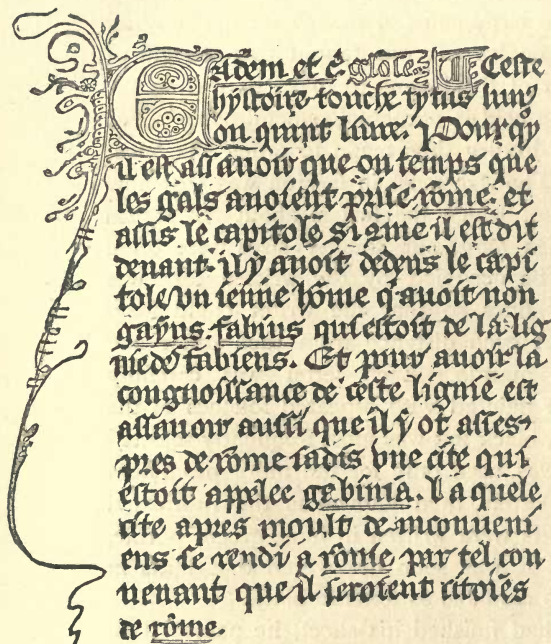 Eadem et c̄. glose. ¶ Ceste
hystoire touche tytus liuiꝰ
ou quint liure. Pour quoy
il est assauoir que ou temps que
les gals auoient prise rōme. et
assis le capitole si 9me il est dit
deuant. il y auoit dedens le capi
tole vn ieune hōme q̄ auoit non
gayus fabius qui estoit de la lig
niede fabiens. Et pour auoir la
congnoissance de ceste lignie est
assauoir aussi que il y ot asses
pres de rōme iadis vne cite qui
estoit appelee gabinia. la quele
cite apres moult de inconueni
ens se rendi a rōme par tel con
uenant que il seroient citoiēs
de rōme.